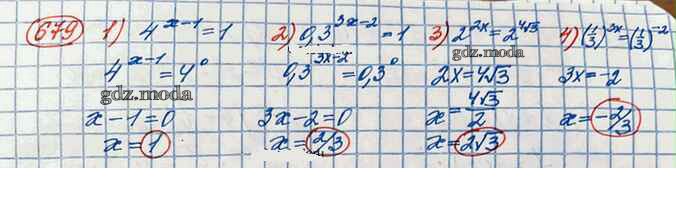 679
1) 4^(x-1) = 1
4^(x-1) = 4^0
gdz.moda
x - 1 = 0
x = 1
2) 0,3^(3x-2) = 1
0,3^(3x-2) = 0,3^0
3x - 2 = 0
x = 2/3
3) 2^(2x) = 2^(4√3)
gdz.moda
2x = 4√3
x = 4√3/2
x = 2√3
4) (1/3)^(3x) = (1/3)^(-2)
gdz.moda
3x = -2
x = -2/3